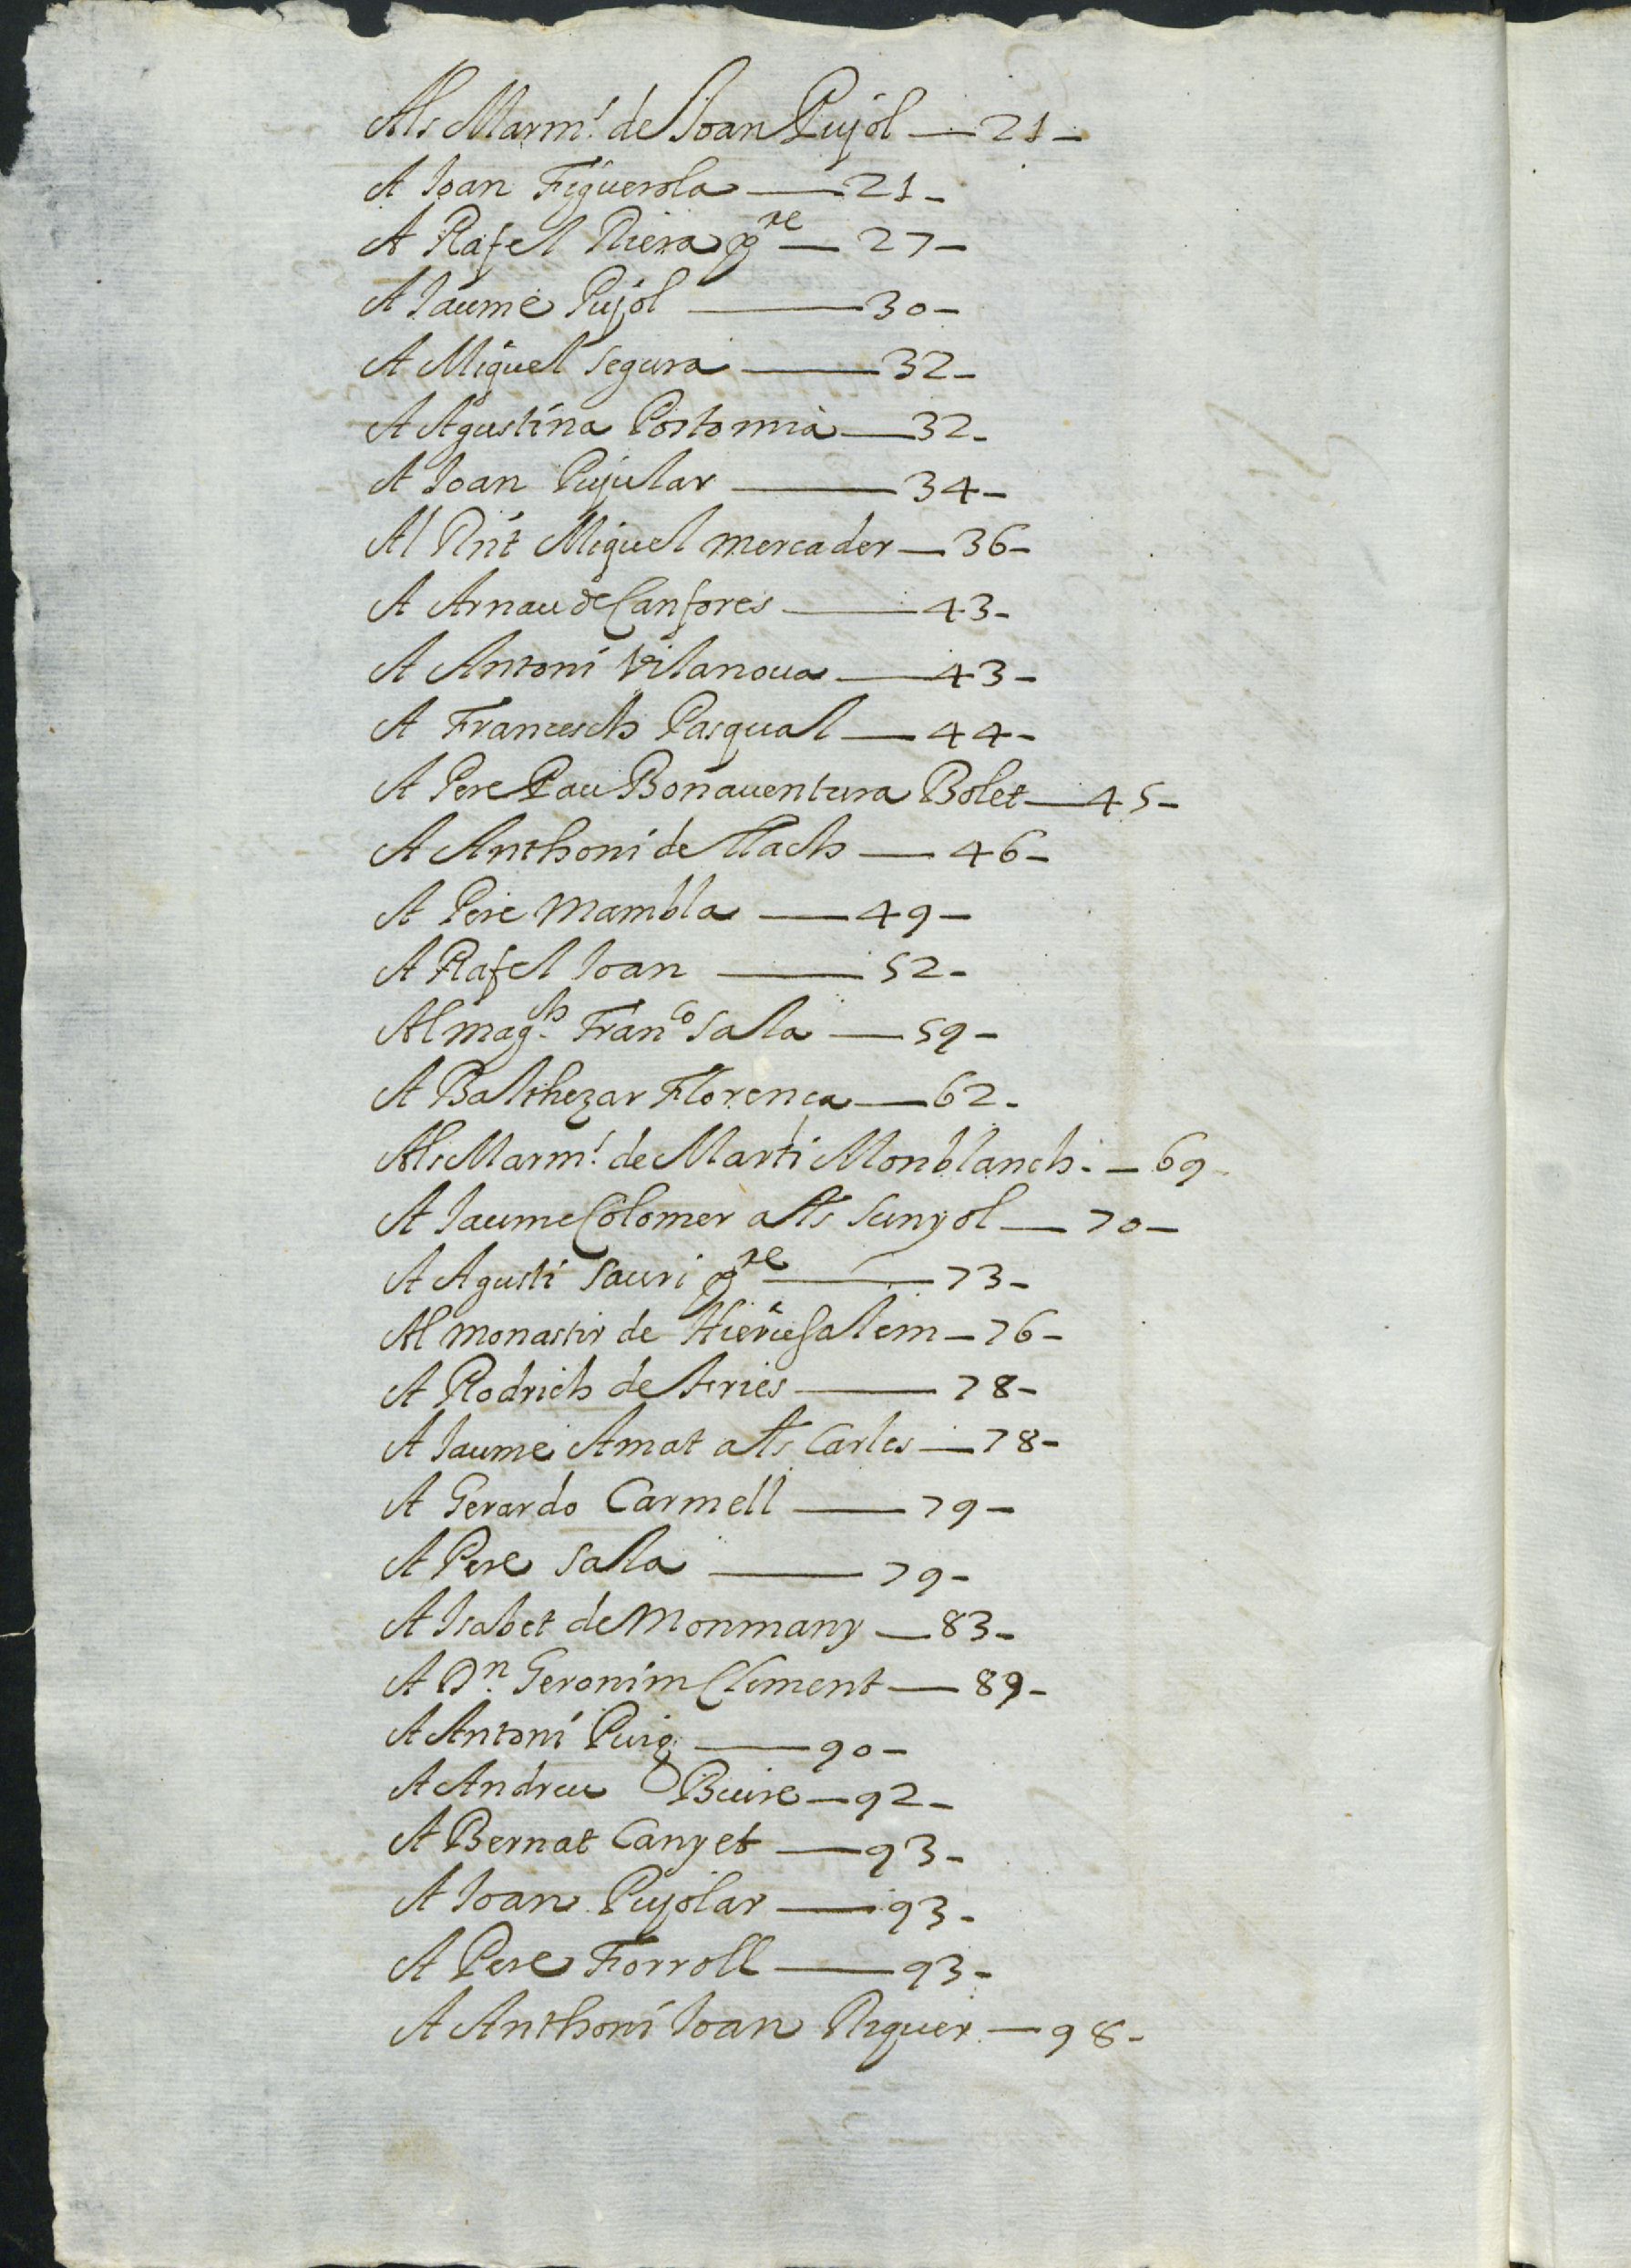 Als Marm.ˢ de Joan Pujol — 21 -
A Joan Figuerola — 21 -
A Rafel Riera pre — 27 -
A Jaume Pujol — 30 -
A Miquel segura — 32 -
A Agustina Postomia — 32 -
A Joan Pujular — 34 -
Al Rñt Miquel mercader — 36 -
A Arnau de Canfores — 43 -
A Antoni Vilanova — 43 -
A Francesch Pasqual — 44 -
A Pere Pau Bonauentura Bolet — 45 -
A Anthoni de Llach — 46 -
A Pere mambla — 49 -
A Rafel Joan — 52 -
Al mag.ch Fran.co sala — 59 -
A Balthezar Florença — 62 -
Als Marm.ˢ de Marti Monblanch. — 69 -
A Jaume Colomer als sunyol — 70 -
A Agusti sauri pre — 73 -
Al monastir de Hierusalem — 76 -
A Rodrich de Aries — 78 -
A Jaume Amat als Carles — 78 -
A Gerardo Carmell — 79 -
A Pere sala — 79 -
A Isabet de Monmany — 83 -
A D.n Geronim Climent — 89 -
A Antoni Puig — 90 -
A Andreu Buire — 92 -
A Bernat Canyet — 93 -
A Joan Pujolar — 93 -
A Pere Forroll — 93 -
A Anthoni Joan Riquer — 98 -